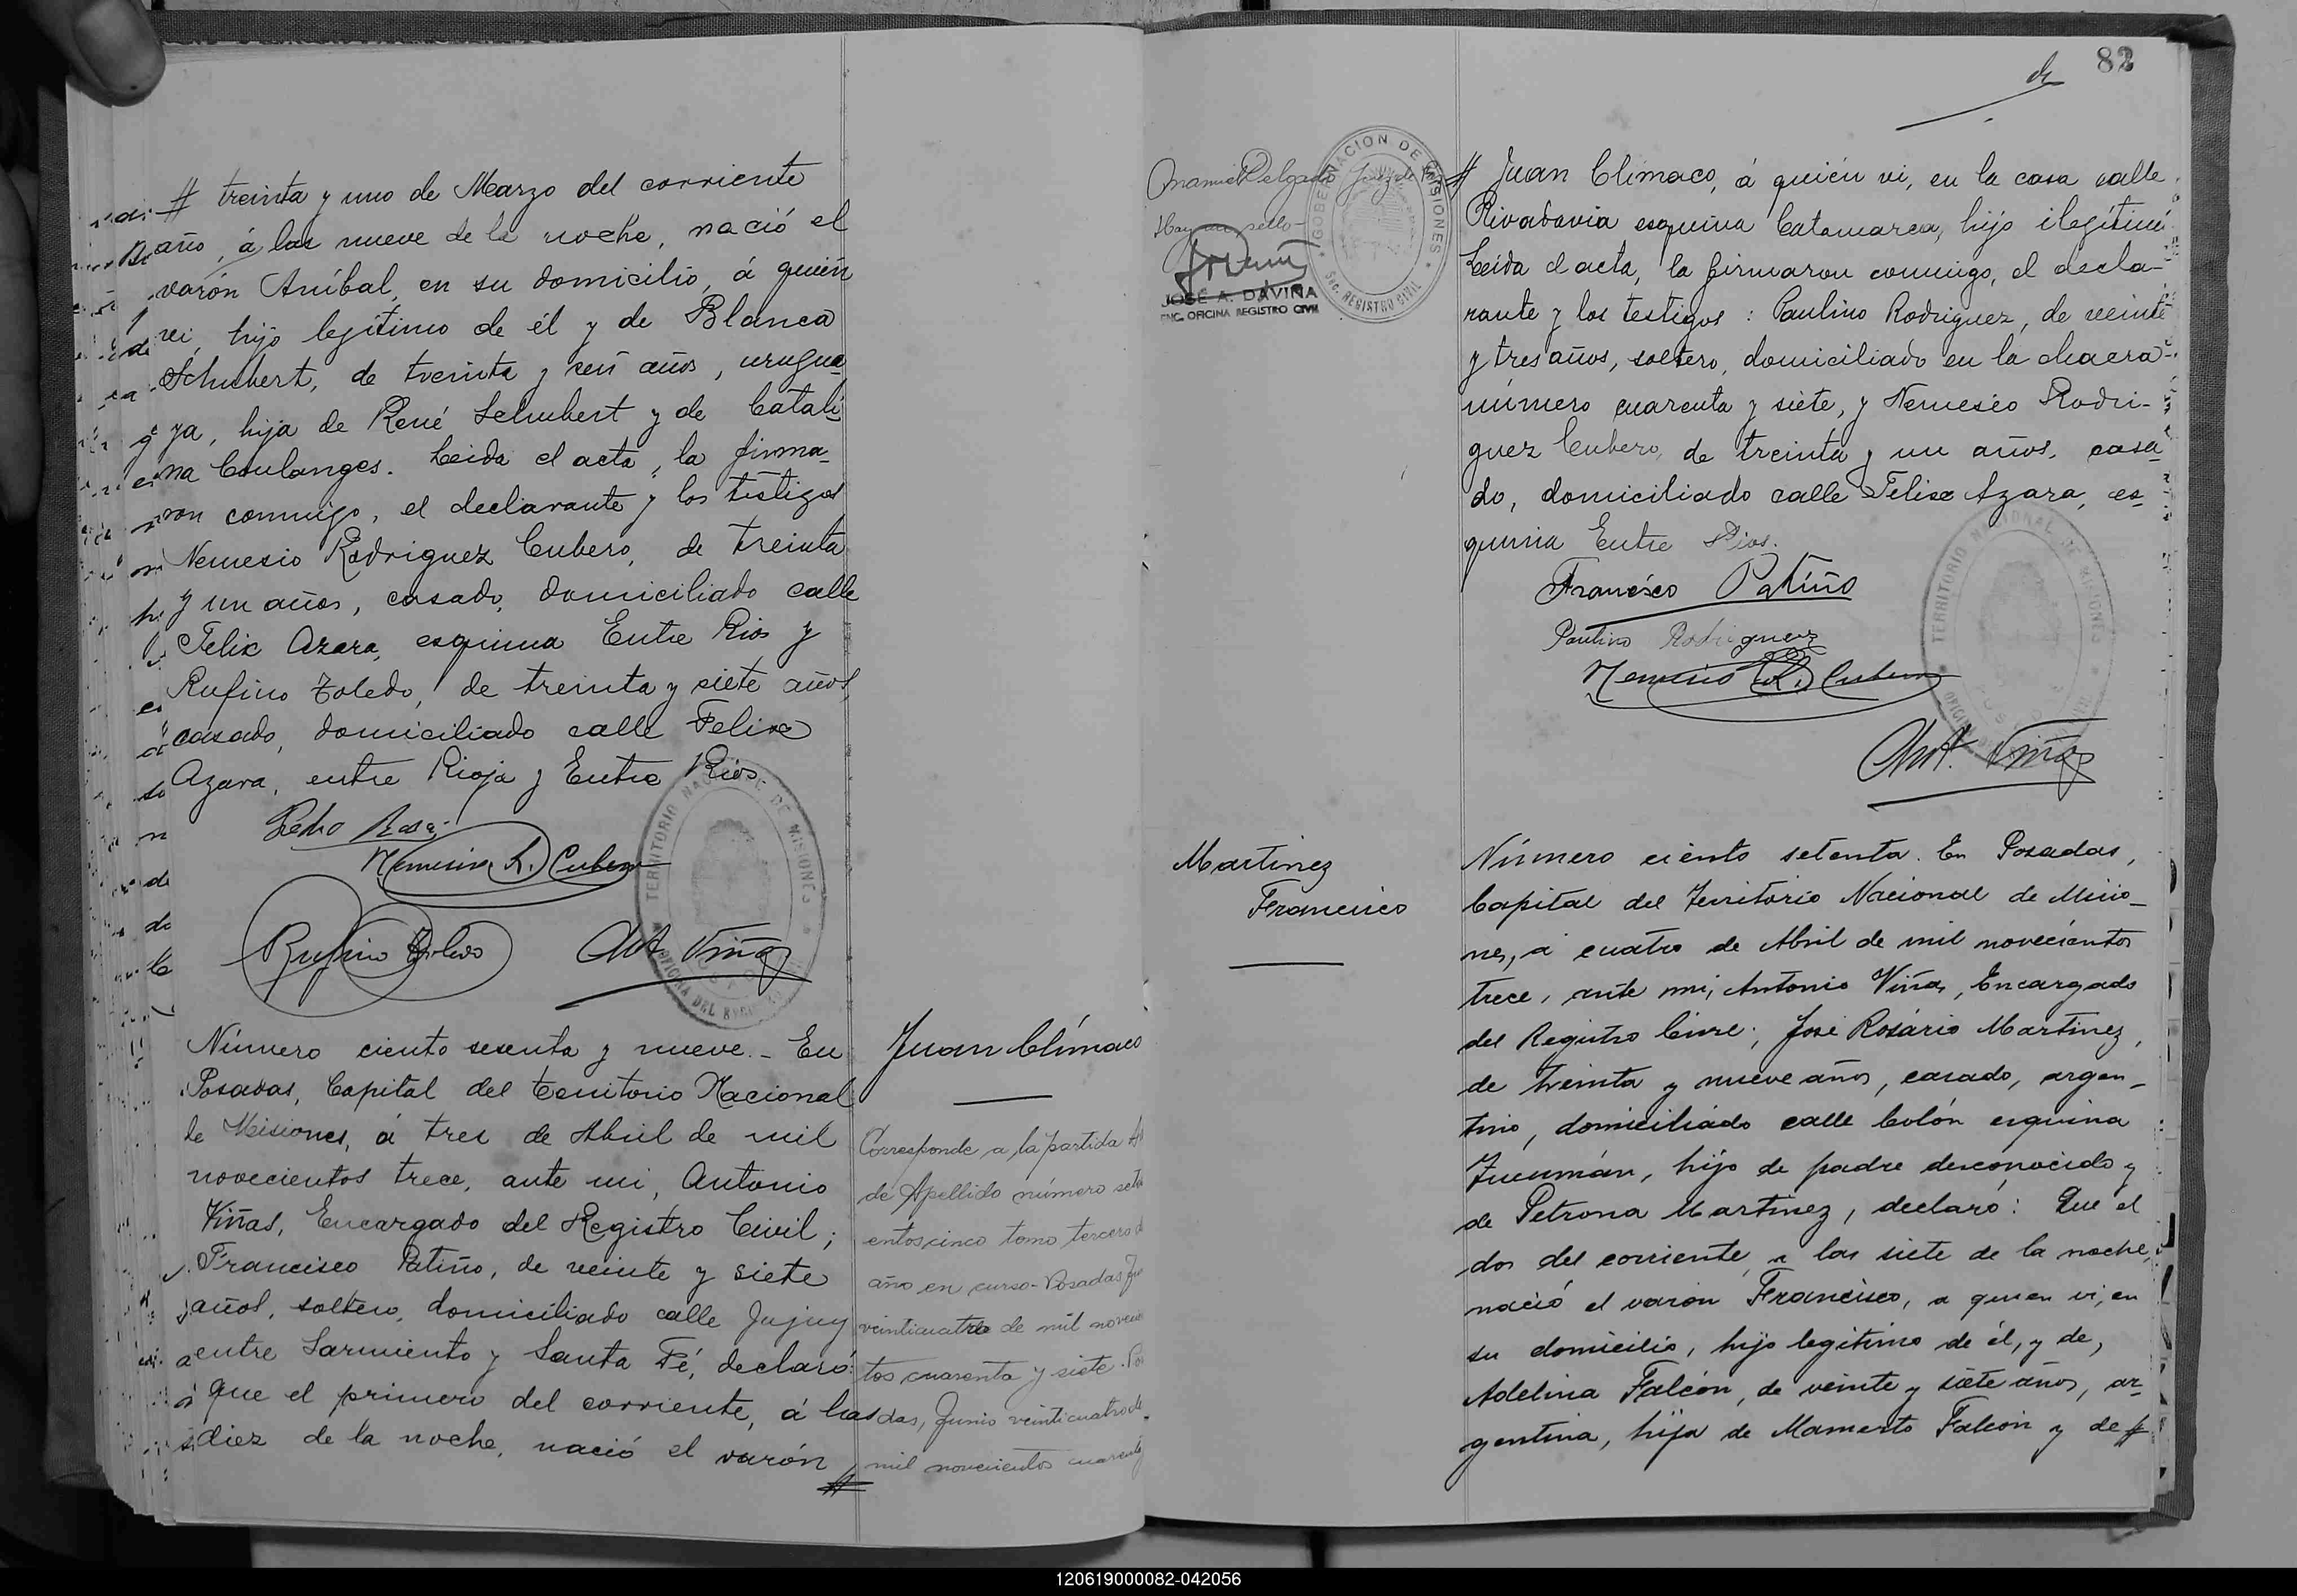 # treinta y uno de Marzo del corriente
año, á las nueve de la noche, nació el
varón Aníbal, en su domicilio, á quien
vi, hijo legítimo de él y de Blanca
Schubert, de treinta y seis años, urugua-
ya, hija de René Schubert y de Catali-
na Coulanges. Leida el acta, la firma-
ron conmigo, el declarante y los testigos
Nemesio Rodriguez Cubero, de treinta
y un años, casado, domiciliado calle
Felix Azara, esquina Entre Rios y
Rufino Toledo, de treinta y siete años,
casado, domiciliado calle Felix
Azara, entre Rioja y Entre Rios.
Pedro
Nemesio R. Cubero
Rufino Toledo
Ant. Viñas
TERRITORIO NACIONAL DE MISIONES
OFICINA DEL REGISTRO
Número ciento sesenta y nueve.- En
Posadas, Capital del Territorio Nacional
de Misiones, á tres de Abril de mil
novecientos trece, ante mi, Antonio
Viñas, Encargado del Registro Civil;
Francisco Patiño, de veinte y siete
años, soltero, domiciliado calle Jujuy
entre Sarmiento y Santa Fé, declaró:
que el primero del corriente, á las
diez de la noche, nació el varón #
Juan Clímaco
Corresponde a la partida
de Apellido número set
entos cinco tomo tercero d
año en curso- Posadas Ju
veinticuatro de mil novecien
tos cuarenta y siete. Po
das, Junio veinticuatro de
mil novecientos cuarenta
82
Manuel Delgado Juez de
Hay un sello-
JOSÉ A. DAVIÑA
ENC. OFICINA REGISTRO CIVIL
GOBERNACION DE MISIONES
Sec. REGISTRO CIVIL
# Juan Climaco, á quién vi, en la casa calle
Rivadavia esquina Catamarca, hijo ilegítimo
Leida el acta, la firmaron conmigo, el decla-
rante y los testigos: Paulino Rodriguez, de veinte
y tres años, soltero, domiciliado en la chacra
número cuarenta y siete, y Nemesio Rodri-
guez Cubero, de treinta y un años, casa-
do, domiciliado calle Felix Azara, es-
quina Entre Rios.
Francisco Patiño
Paulino Rodriguez
Nemesio R. Cubero
Ant. Viñas
TERRITORIO NACIONAL DE MISIONES
Martinez
Francisco
Número ciento setenta. En Posadas,
Capital del Territorio Nacional de Misio-
nes, a cuatro de Abril de mil novecientos
trece, ante mi, Antonio Viñas, Encargado
del Registro Civil; José Rosário Martinez,
de treinta y nueve años, casado, argen-
tino, domiciliado calle Colón esquina
Tucumán, hijo de padre desconocido y
de Petrona Martinez, declaró: Que el
dos del corriente a las siete de la noche,
nació el varón Francisco, a quien vi, en
su domicilio, hijo legitimo de él, y de,
Adelina Falcón, de veinte y siete años, ar-
gentina, hija de Mamerto Falcón y de #